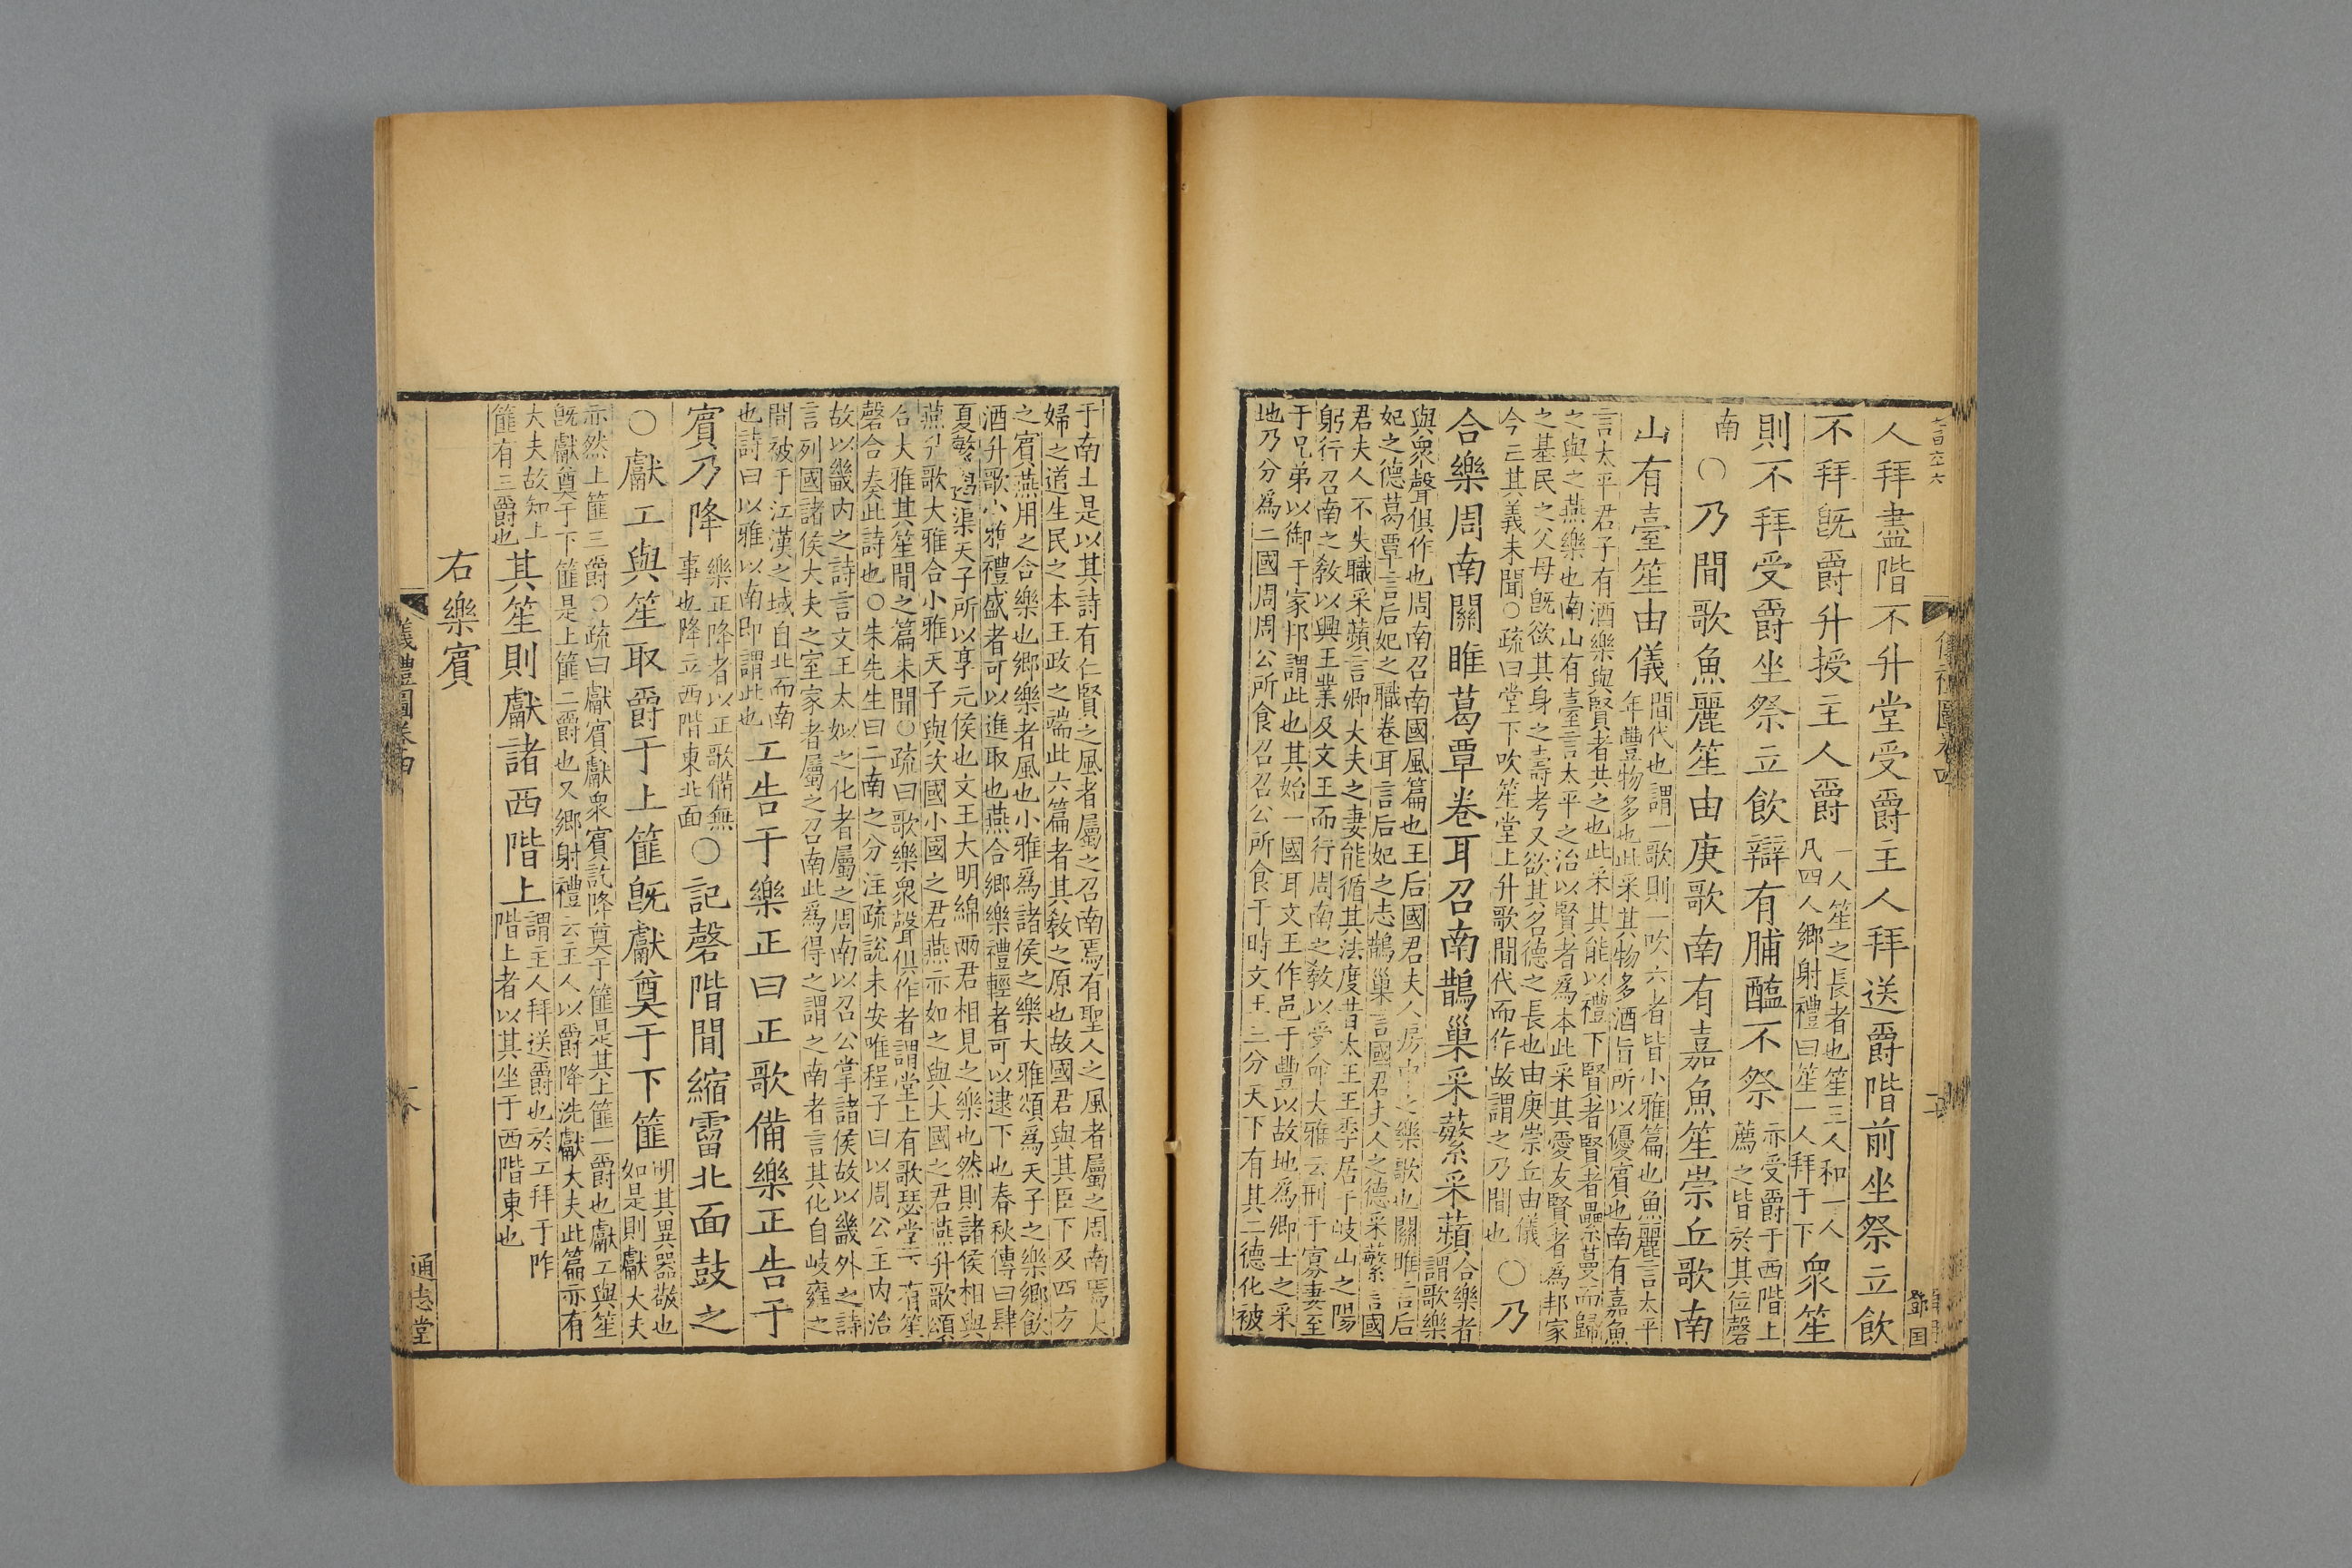 人拜盡階不升堂受爵主人拜送爵階前坐祭立飲
不拜旣爵升授主人爵一人笙之長者也笙三人和一人凡四人鄉射禮曰笙一人拜于下衆笙
則不拜受爵坐祭立飲辯有脯醢不祭亦受爵于西階上薦之皆於其位磬
南○乃間歌魚麗笙由庚歌南有嘉魚笙崇丘歌南
山有臺笙由儀間代也謂一歌則一吹六者皆小雅篇也魚麗言太平年豐物多也此采其物多酒旨所以優賓也南有嘉魚
言太平君子有酒樂與賢者共之也此采其能以禮下賢者賢者纍蔓而歸
之與之燕樂也南山有臺言太平之治以賢者爲本此采其愛友賢者爲邦家
之基民之父母旣欲其身之壽考又欲其名德之長也由庚崇丘由儀
今亡其義未聞○疏曰堂下吹笙堂上升歌間代而作故謂之乃間也○乃
合樂周南關雎葛覃卷耳召南鵲巢采蘩采蘋合樂者謂歌樂
與衆聲俱作也周南召南國風篇也王后國君夫人房中之樂歌也關雎言后
妃之德葛覃言后妃之職卷耳言后妃之志鵲巢言國君夫人之德采蘩言國
君夫人不失職采蘋言卿大夫之妻能循其法度昔太王王季居于岐山之陽
躬行召南之敎以興王業及文王而行周南之敎以受命大雅云刑于寡妻至
于兄弟以御于家邦謂此也其始一國耳文王作邑于豐以故地爲卿士之采
地乃分爲二國周周公所食召召公所食于時文王三分天下有其二德化被
于南土是以其詩有仁賢之風者屬之召南焉有聖人之風者屬之周南焉夫
婦之道生民之本王政之端此六篇者其敎之原也故國君與其臣下及四方
之賓燕用之合樂也鄉樂者風也小雅爲諸侯之樂大雅頌爲天子之樂鄉飲
酒升歌小雅禮盛者可以進取也燕合鄉樂禮輕者可以逮下也春秋傳曰肆
夏繁遏渠天子所以享元侯也文王大明緜兩君相見之樂也然則諸侯相與
燕升歌大雅合小雅天子與次國小國之君燕亦如之與大國之君燕升歌頌
合大雅其笙間之篇未聞○疏曰歌樂衆聲俱作者謂堂上有歌瑟堂下有笙
磬合奏此詩也○朱先生曰二南之分注疏說未安唯程子曰以周公主內治
故以畿內之詩言文王太姒之化者屬之周南以召公掌諸侯故以畿外之詩
言列國諸侯大夫之室家者屬之召南此爲得之謂之南者言其化自岐雍之
間被于江漢之域自北而南也詩曰以雅以南卽謂此也工告于樂正曰正歌備樂正告于
賓乃降樂正降者以正歌備無事也降立西階東北面○記磬階間縮霤北面鼓之
○獻工與笙取爵于上篚旣獻奠于下篚明其異器敬也如是則獻大夫
亦然上篚三爵○疏曰獻賓獻衆賓訖降奠于篚是其上篚一爵也獻工與笙
旣獻奠于下篚是上篚二爵也又鄉射禮云主人以爵降洗獻大夫此篇亦有
大夫故知上篚有三爵也其笙則獻諸西階上謂主人拜送爵也於工拜于阼階上者以其坐于西階東也
右樂賓
儀禮圖卷四
通志堂